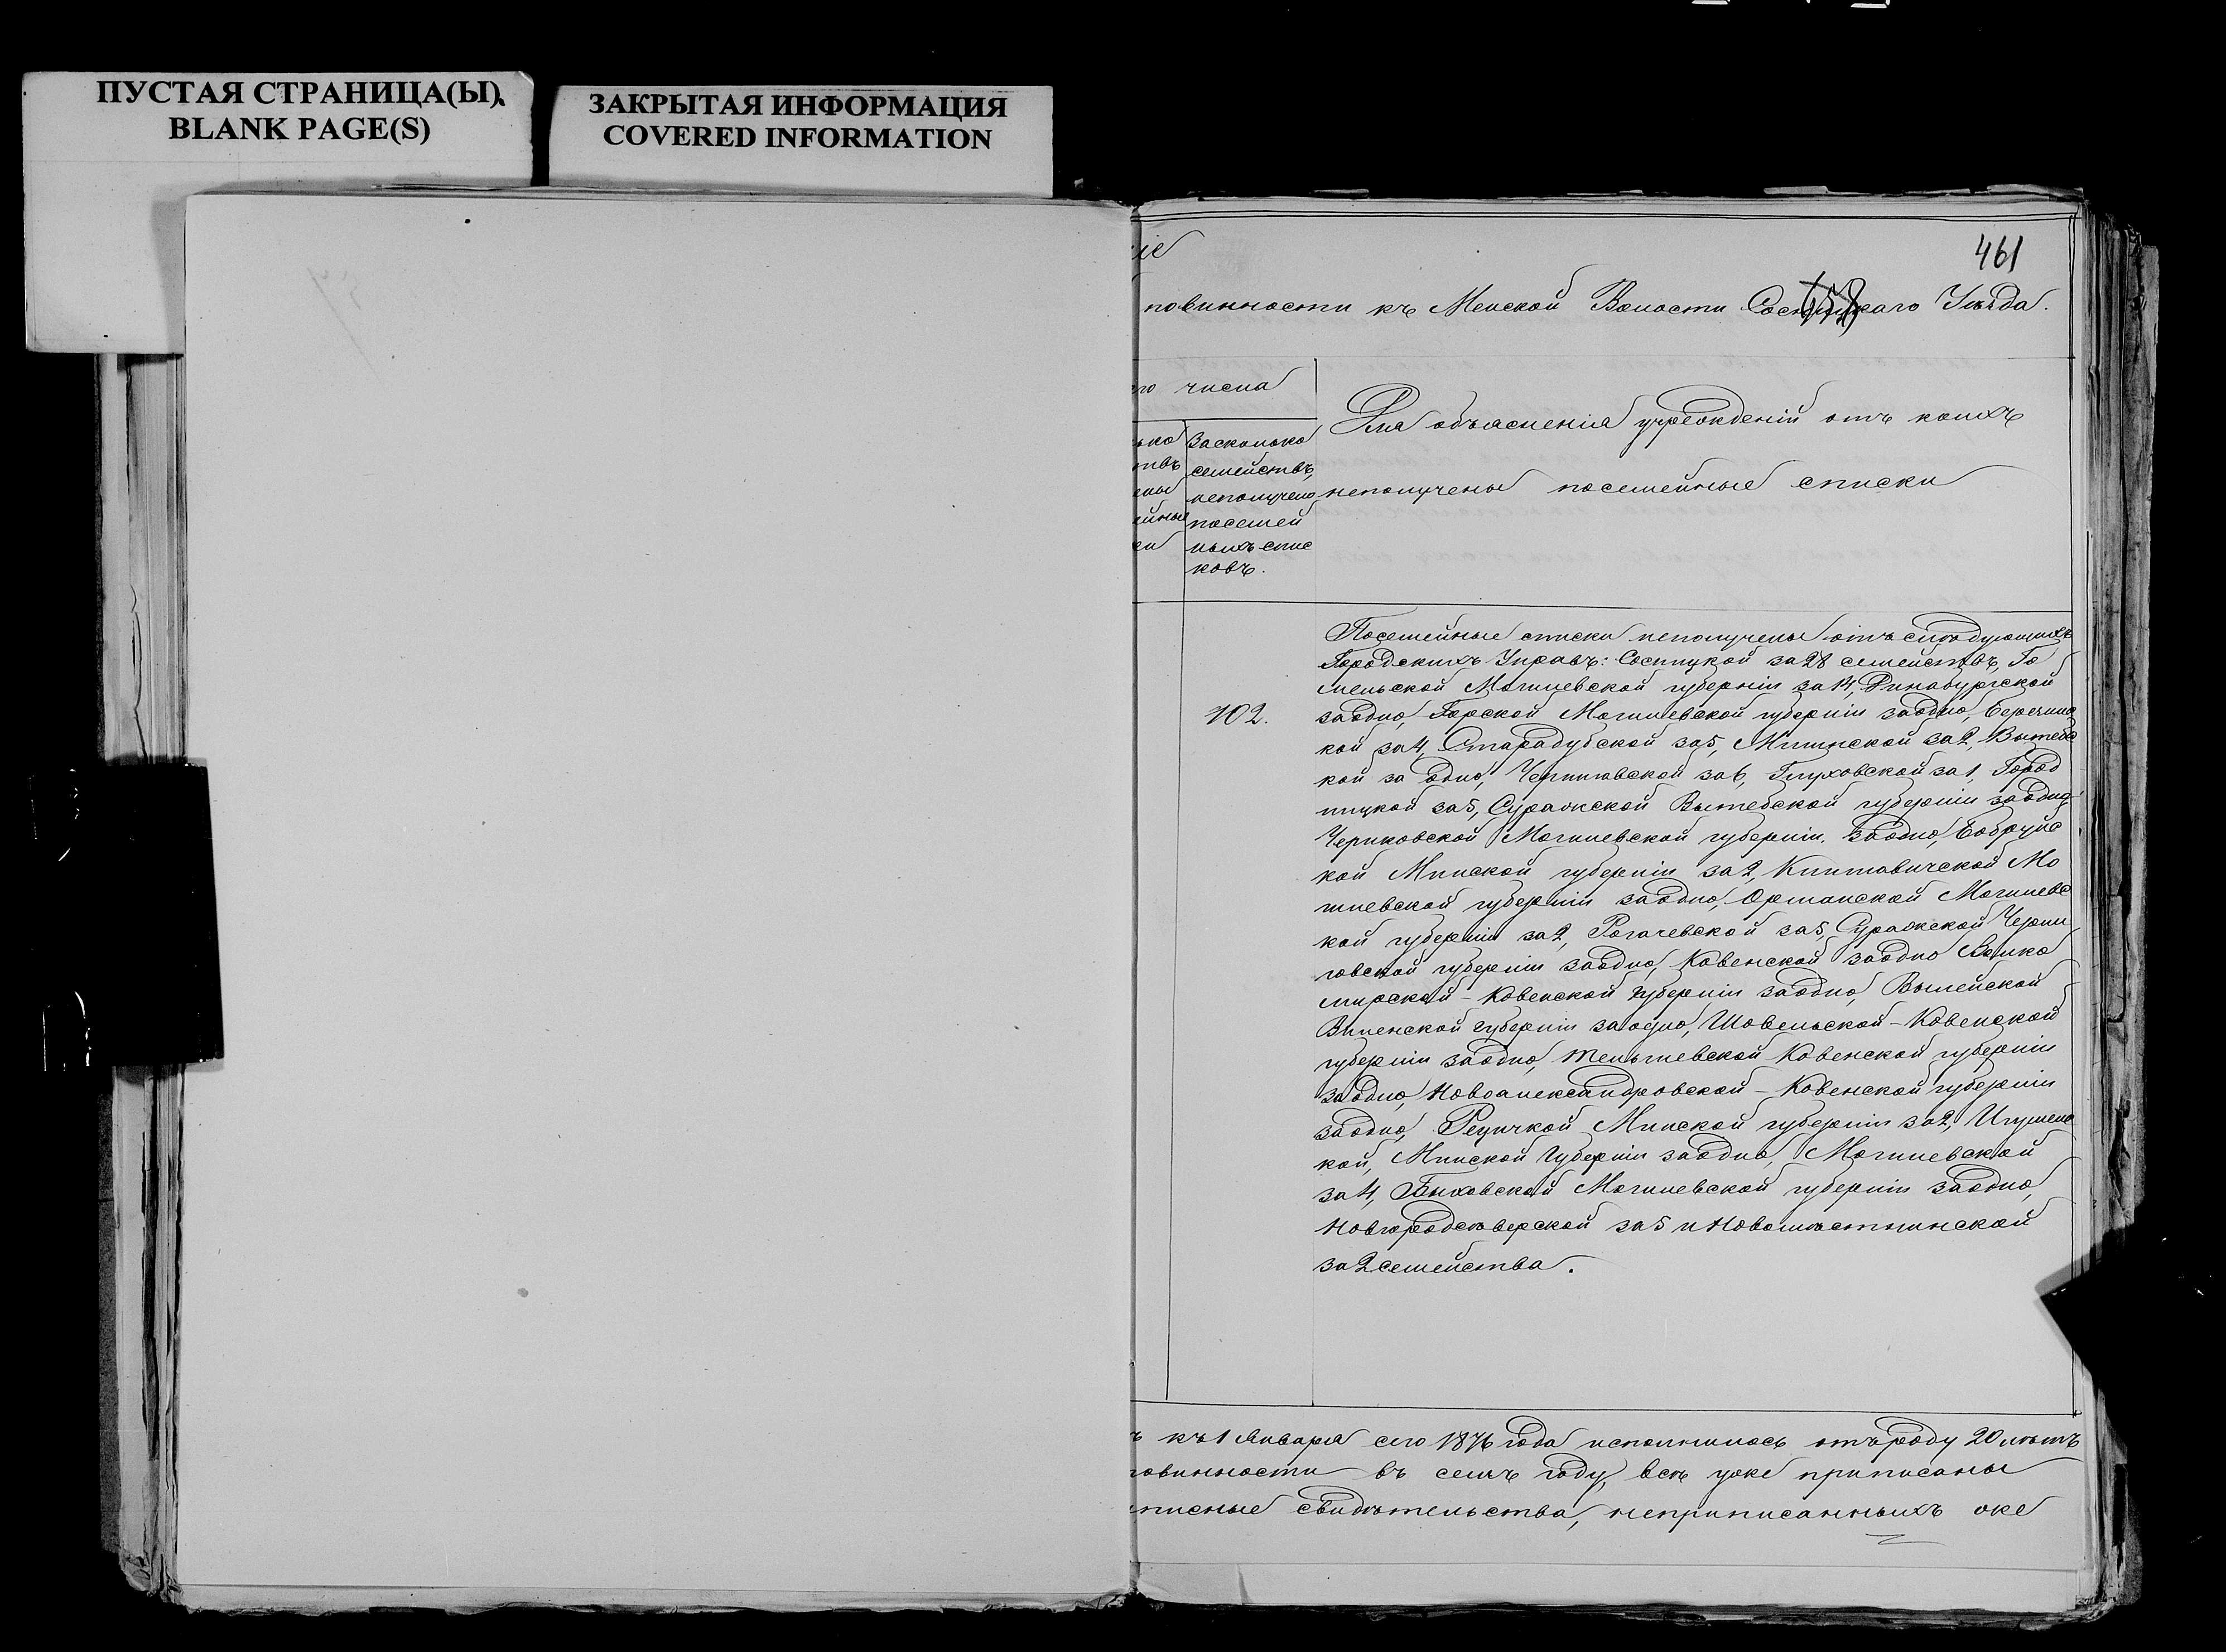 ПУСТАЯ СТРАНИЦА(Ы)
BLANK PAGE(S)
ЗАКРЫТАЯ ИНФОРМАЦИЯ
COVERED INFORMATION
іе
461
повинности къ Менской Волости Сосницкаго Уѣзда.
го числа
Для объясненія учрежденій отъ коихъ
неполучены посемейные списки
ько
твъ
ены
ейные
ки
Засколько
семействъ,
неполучено
посемей
ныхъ спис
ковъ.
102.
Посемейные списки неполучены отъ слѣдующихъ
Городскихъ Управъ: Сосницкой за 28 семействъ, Го
мельской Могилевской губерніи за 14, Динабургской
заодно, Горской Могилевской губерніи заодно, Березинс
кой за 4, Старадубской за 5, Мглинской за 2, Вытебс
кой за одно, Черниговской за 6, Глуховской за 1, Город
ницкой за 5, Суражской Вытебской губерніи заодно,
Чериковской Могилевской губерніи. заодно, Бобруйс
кой Минской губерніи за 2, Климовичской Мо
гилевской губерніи заодно, Оршанской Могилевс
кой губерніи за 2, Рогачевской за 5, Суражской Черни
говской губерніи заодно, Ковенской заодно Вилко
мирской - Ковенской губерніи заодно, Вылейской
Виленской губерніи за одно, Шовельской - Ковенской
губерніи заодно, Тельшевской Ковенской губерніи
заодно, Новоалександровской - Ковенской губерніи
заодно, Речичкой Минской губерніи за 2, Игуменс
кой, Минской Губерніи заодно, Могилевской
за 4, Быховской Могилевской губерніи заодно,
Новгородсѣверской за 5 и Новомѣстнинской
за 2 семейства.
ъ къ 1 Января сего 1876 года исполнилось отъ роду 20 лѣтъ
повинности въ семъ году, всѣ уже приписаны
писные свидѣтельства, неприписанныхъ же